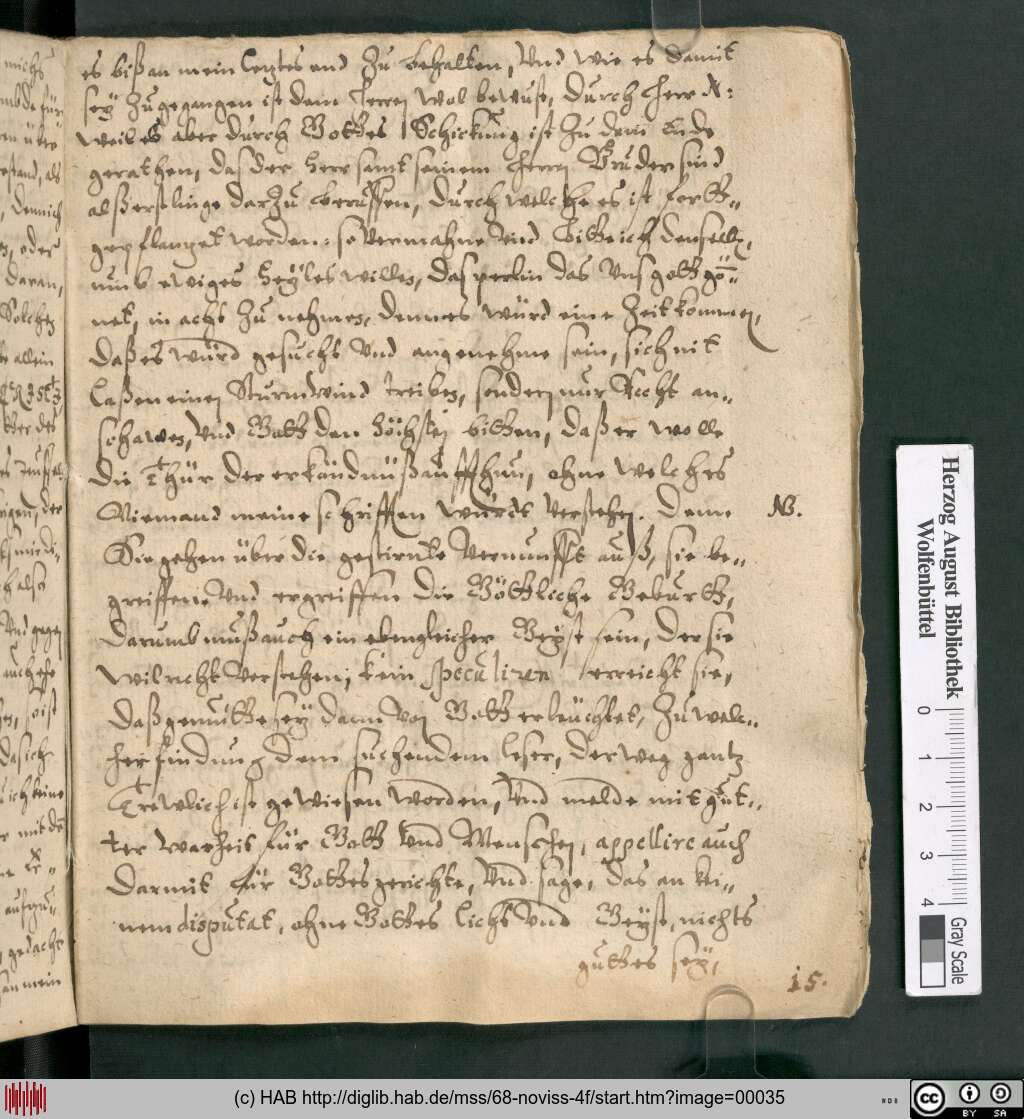 es biß an mein letztes end zu behalten, Vnd wie es damit
seÿ zugegangen ist dem Herren wol bewust, durch Herr N:
weil es aber durch Gottes Schickung ist zu dem Ende
gerathen, das der Herr samt seinem Herren Bruder sind
alß erstlinge darzu beruffen, durch welche es ist fortt-
gepflantzet worden: so Vermahne Vnd bitte ich denselben,
umb ewiges heÿles willen, das perlin das Vns gott gön-
net, in acht zu nehmen, denn es würd eine Zeit kommen,
daß es würd gesucht Vnd angenehme sein, sich nit
laßen einen Sturmwind treiben, sondern nur Recht an-
schawen, Vnd Gott den höchsten bitten, daß er wolle
die Thür der erkändnüß auffthun, ohne welches
Niemand meine schrifften würdt Verstehen. Denn
Sie gehen über die gestirnte Vernunfft auß, sie be-
greiffen Vnd ergreiffen die Göttliche Geburtt,
darumb muß auch ein ebengleicher Geÿst sein, der sie
wil recht Verstehen, kein speculiren erreicht sie,
daß gemütte seÿ dann Von Gott erleuchtet, zu wel-
cher findung dem suchendem leser, der weg gantz
Trewlich ist gewiesen worden, Vnd melde mit gut-
ter warheit für Gott Vnd Menschen, appellire auch
darmit für Gottes gerichte, Vnd sage, das an kei-
nem disputat, ohne Gottes licht Vnd Geÿst, nichts
guttes seÿ,
NB.
15.
Herzog August Bibliothek
Wolfenbüttel
0 1 2 3 4
Gray Scale
(c) HAB http://diglib.hab.de/mss/68-noviss-4f/start.htm?image=00035
cc BY SA